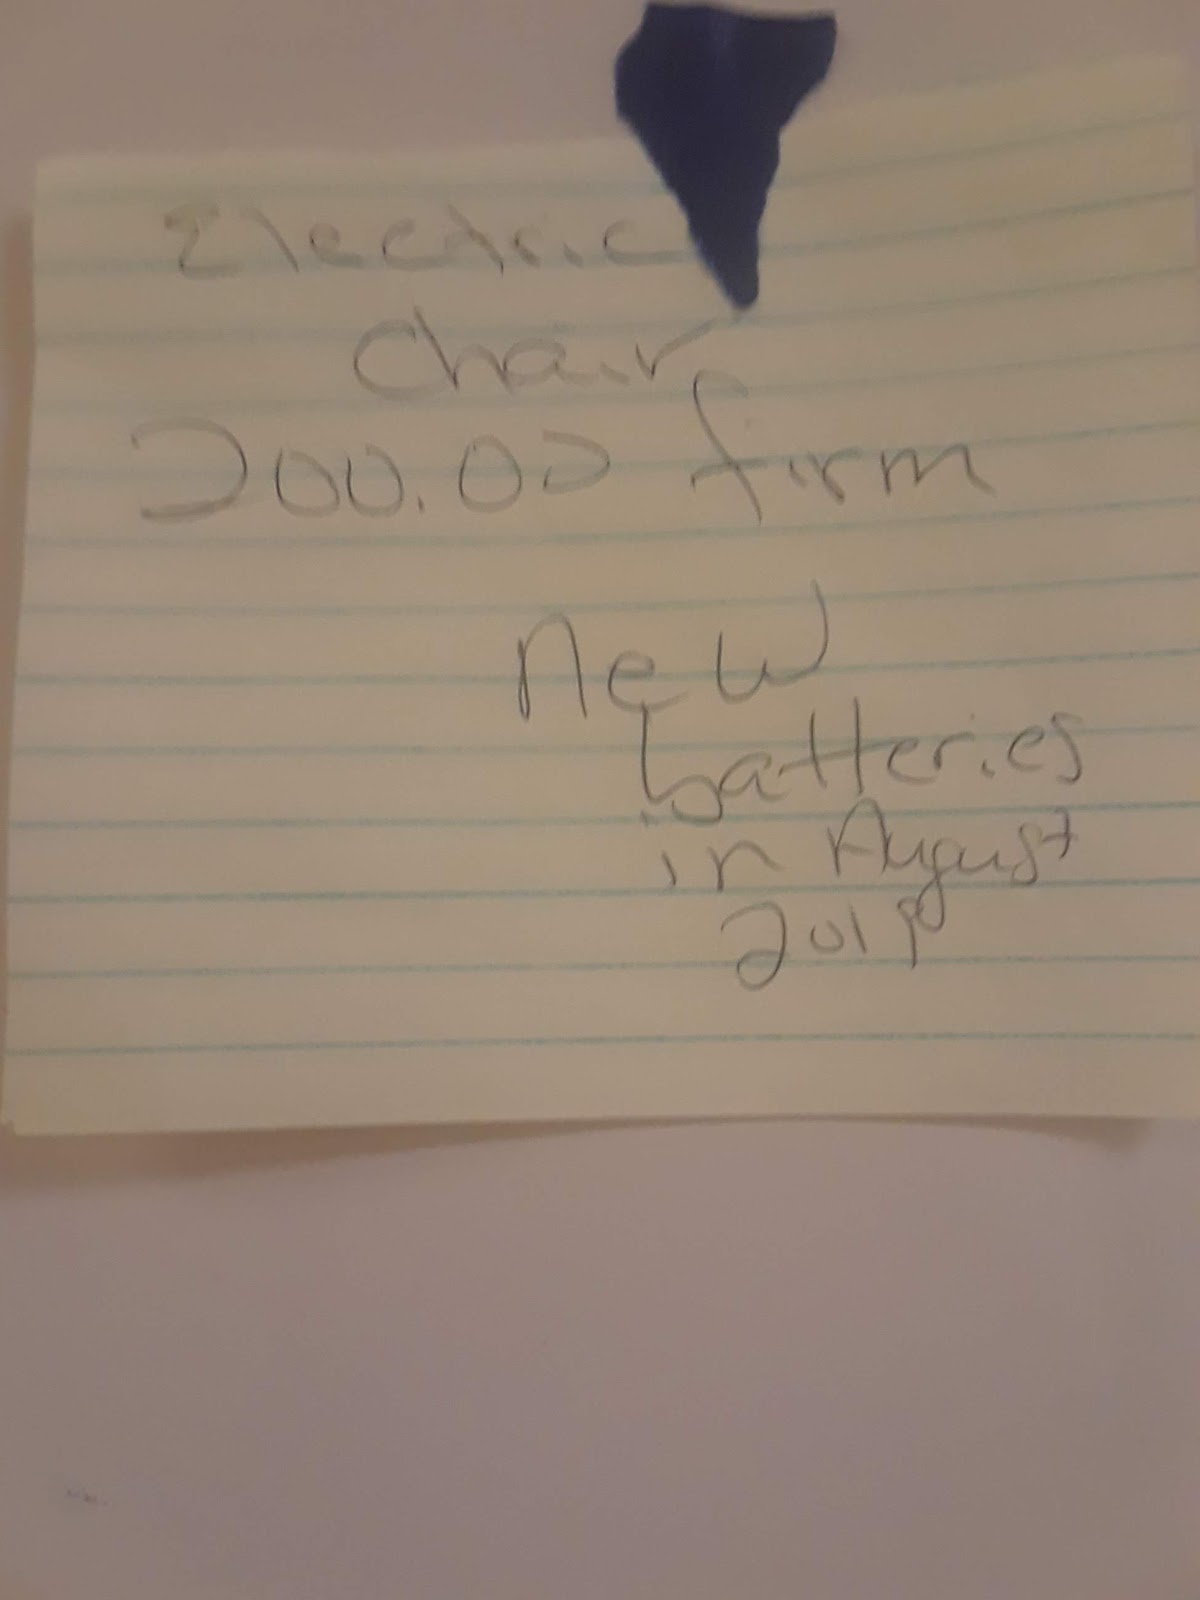 Electric
Chair
200.00 firm
New
batteries
in August
2019